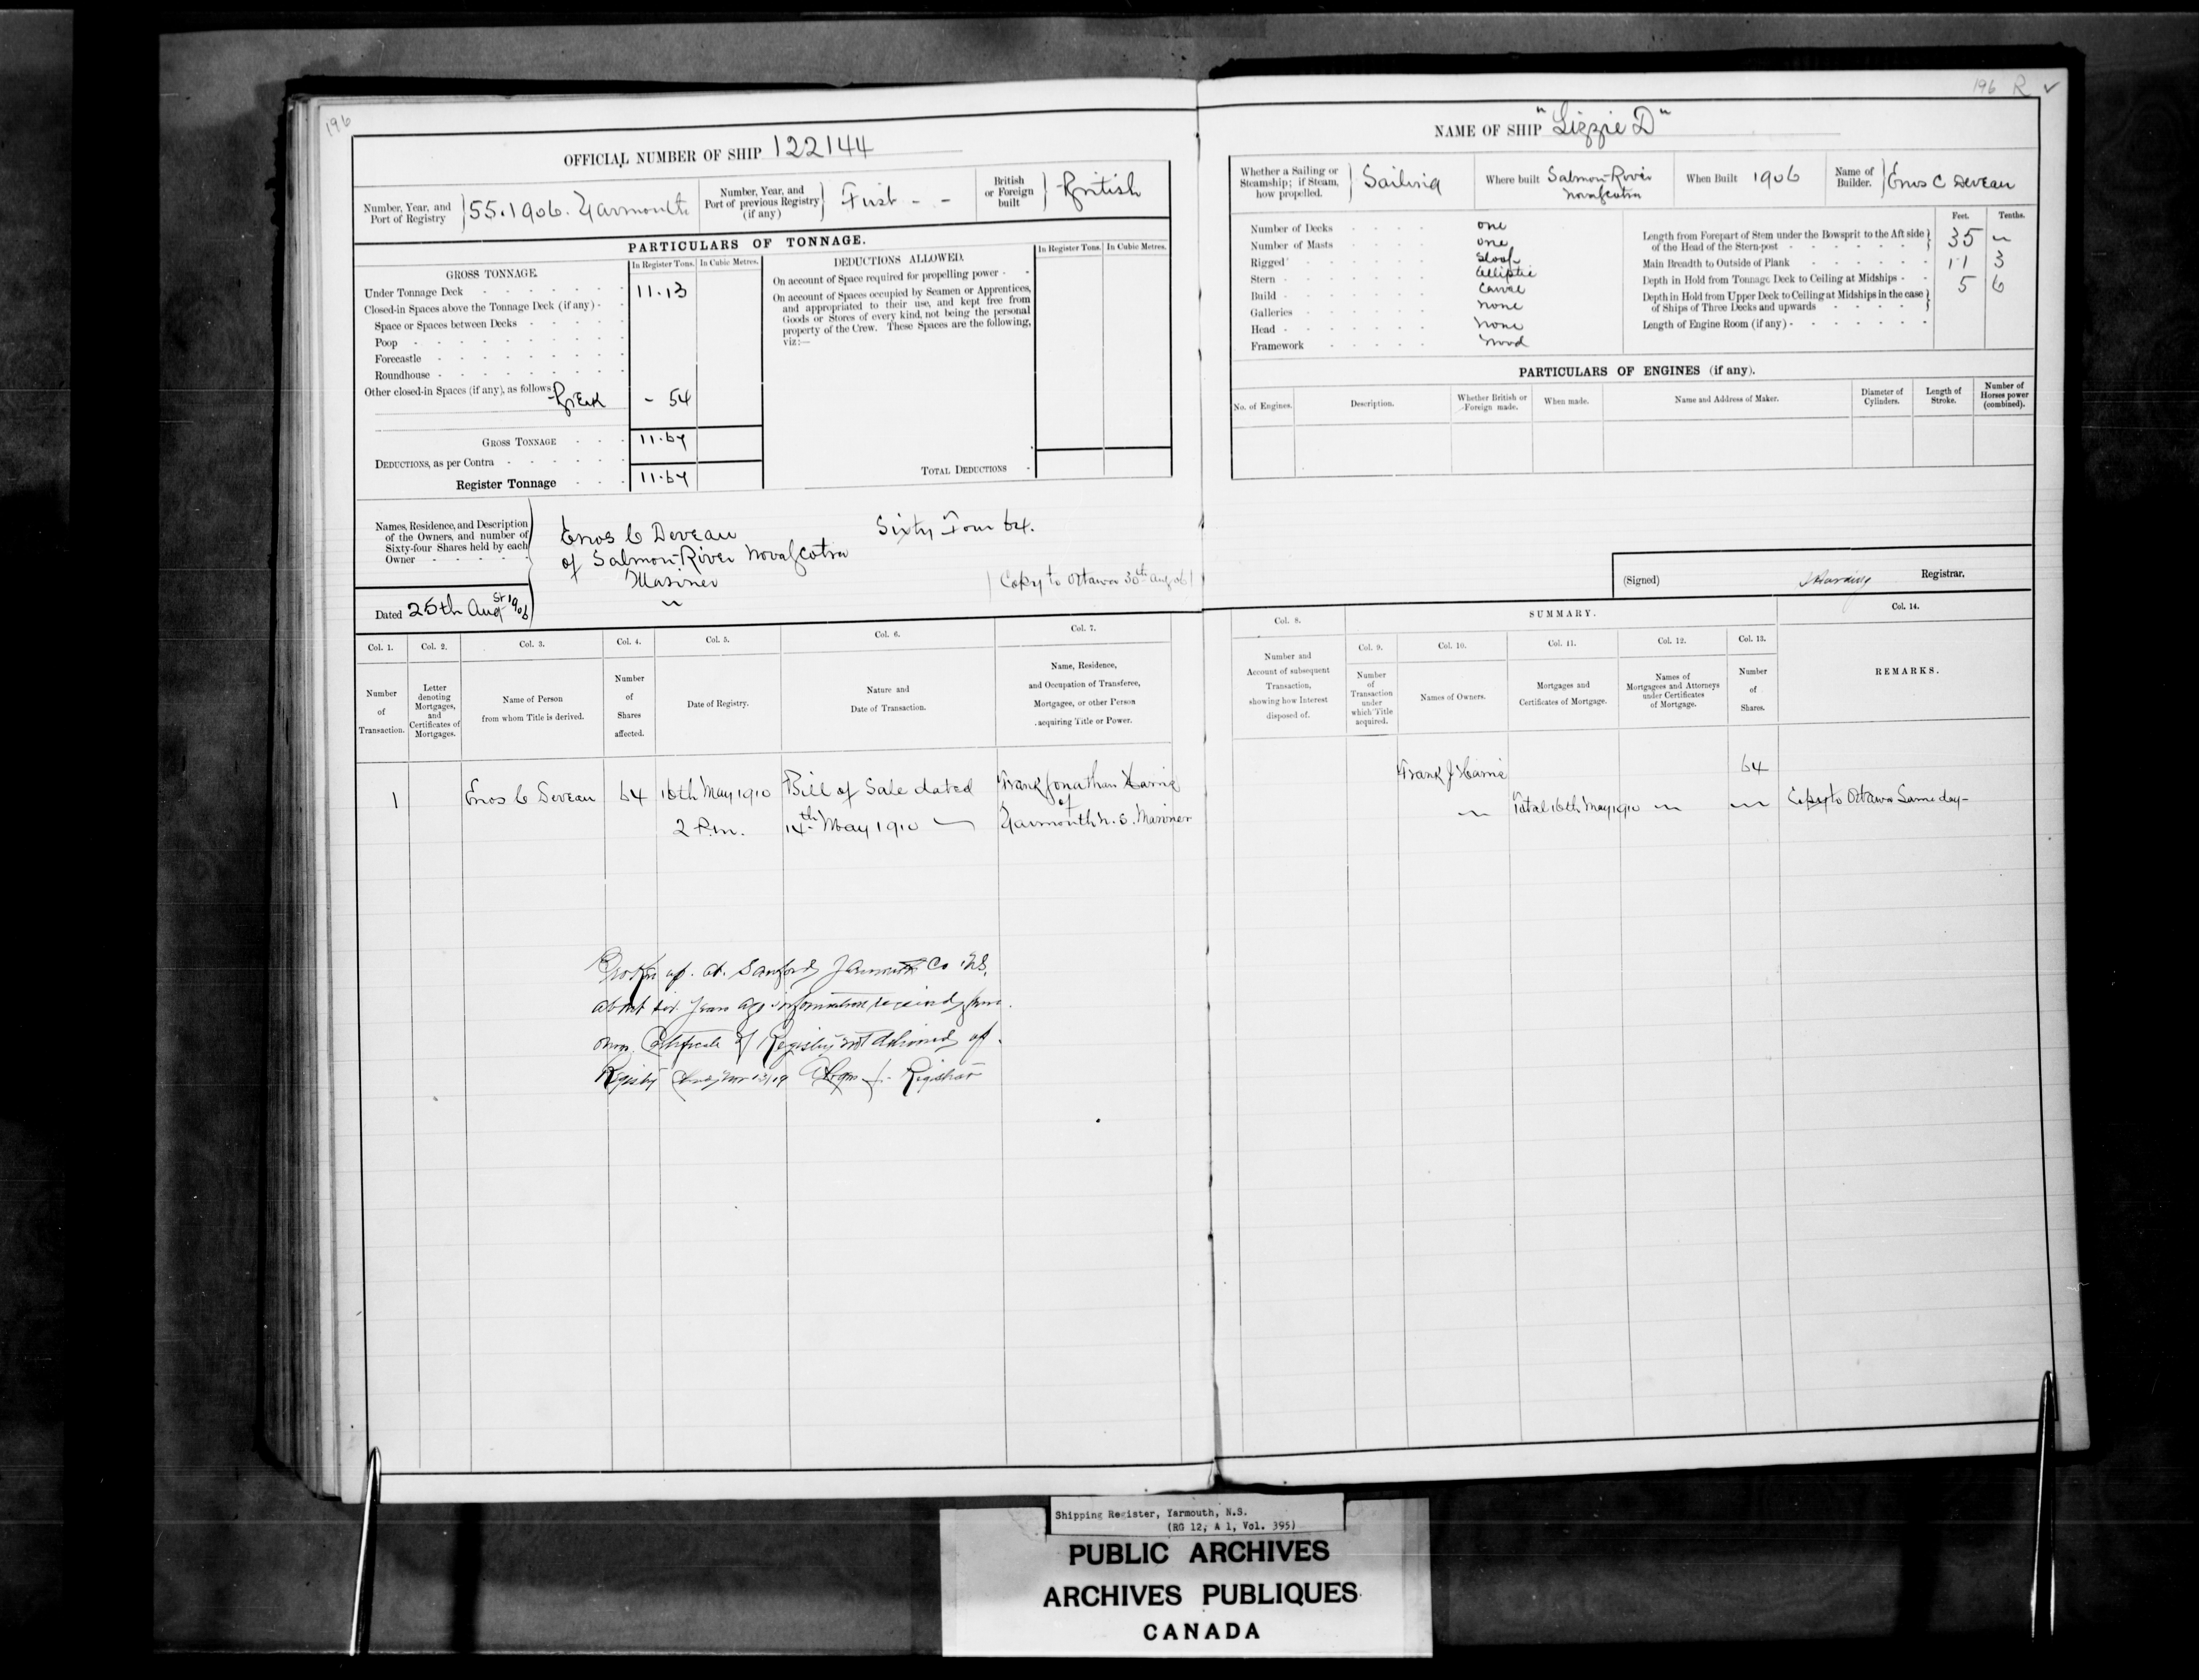 196
OFFICIAL NUMBER OF SHIP 122144
Number, Year, and Port of Registry } 55.1906. Yarmouth
Number, Year, and Port of previous Registry (if any) } First - -
British or Foreign built } British
PARTICULARS OF TONNAGE.
GROSS TONNAGE.
In Register Tons. In Cubic Metres.
Under Tonnage Deck 11.13
Closed-in Spaces above the Tonnage Deck (if any) -
Space or Spaces between Decks
Poop
Forecastle
Roundhouse
Other closed-in Spaces (if any), as follows
Break - 54
GROSS TONNAGE 11.67
DEDUCTIONS, as per Contra
Register Tonnage 11.67
DEDUCTIONS ALLOWED.
In Register Tons. In Cubic Metres.
On account of Space required for propelling power -
On account of Spaces occupied by Seamen or Apprentices,
and appropriated to their use, and kept free from
Goods or Stores of every kind, not being the personal
property of the Crew. These Spaces are the following,
viz:—
TOTAL DEDUCTIONS
Names, Residence, and Description
of the Owners, and number of
Sixty-four Shares held by each
Owner
Enos C Deveau Sixty Four 64.
of Salmon River Nova Scotia
Mariner
(Copy to Ottawa 30th Aug 06)
Dated 25th Augst 1906
Col. 1. Col. 2. Col. 3. Col. 4. Col. 5. Col. 6. Col. 7.
Number of Transaction.
Letter denoting Mortgages, and Certificates of Mortgages.
Name of Person from whom Title is derived.
Number of Shares affected.
Date of Registry.
Nature and Date of Transaction.
Name, Residence, and Occupation of Transferee, Mortgagee, or other Person acquiring Title or Power.
1 Enos C Deveau 64 16th May 1910 Bill of Sale dated Frank Jonathan Harris
of
2 P.m. 14th May 1910 Yarmouth N.S. Mariner
Broken up at Sanford Yarmouth Co N.S.
about six years ago information received from
owner Certificate of Registry not delivered up.
Registry Closed Nov 13/19 Registrar
196 R ✓
NAME OF SHIP "Lizzie D"
Whether a Sailing or Steamship; if Steam, how propelled. } Sailing
Where built Salmon River Nova Scotia
When Built 1906
Name of Builder. } Enos C Deveau
Number of Decks one
Number of Masts one
Rigged Sloop
Stern Elliptic
Build Carvel
Galleries none
Head none
Framework Wood
Feet. Tenths.
Length from Forepart of Stem under the Bowsprit to the Aft side of the Head of the Stern-post 35 ~
Main Breadth to Outside of Plank 11 3
Depth in Hold from Tonnage Deck to Ceiling at Midships 5 6
Depth in Hold from Upper Deck to Ceiling at Midships in the case of Ships of Three Decks and upwards
Length of Engine Room (if any)
PARTICULARS OF ENGINES (if any).
No. of Engines. Description. Whether British or Foreign made. When made. Name and Address of Maker. Diameter of Cylinders. Length of Stroke. Number of Horses power (combined).
(Signed) Harding Registrar.
Col. 8. SUMMARY. Col. 14.
Col. 9. Col. 10. Col. 11. Col. 12. Col. 13.
Number and Account of subsequent Transaction, showing how Interest disposed of.
Number of Transaction under which Title acquired.
Names of Owners.
Mortgages and Certificates of Mortgage.
Names of Mortgagees and Attorneys under Certificates of Mortgage.
Number of Shares.
REMARKS.
Frank J Harris 64
Total 16th May 1910 Copy to Ottawa Same day-
Shipping Register, Yarmouth, N.S.
(RG 12, A 1, Vol. 395)
PUBLIC ARCHIVES
ARCHIVES PUBLIQUES
CANADA